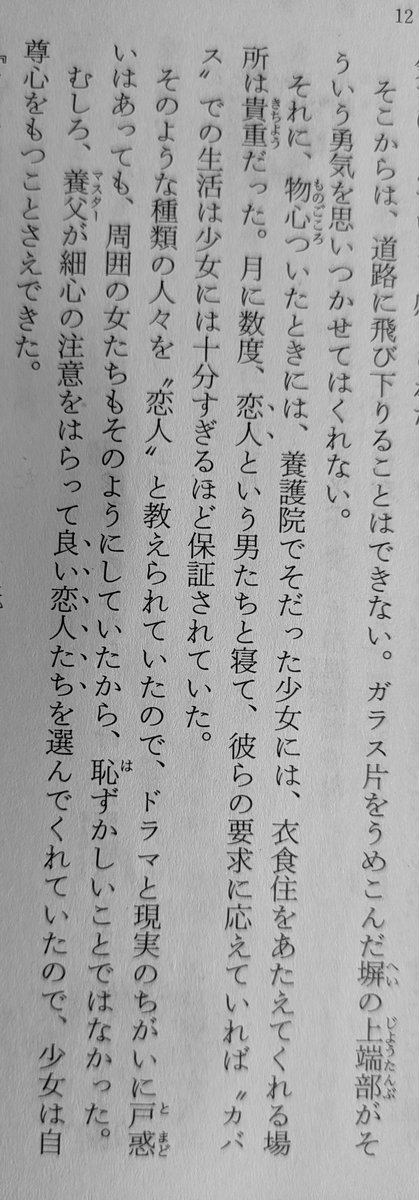 12
そこからは、道路に飛び下りることはできない。ガラス片をうめこんだ塀の上端部がそ
ういう勇気を思いつかせてはくれない。
それに、物心ついたときには、養護院でそだった少女には、衣食住をあたえてくれる場
所は貴重だった。月に数度、恋人という男たちと寝て、彼らの要求に応えていれば〝カバ
ス〟での生活は少女には十分すぎるほど保証されていた。
そのような種類の人々を〝恋人〟と教えられていたので、ドラマと現実のちがいに戸惑
いはあっても、周囲の女たちもそのようにしていたから、恥ずかしいことではなかった。
むしろ、養父が細心の注意をはらって良い恋人たちを選んでくれていたので、少女は自
尊心をもつことさえできた。